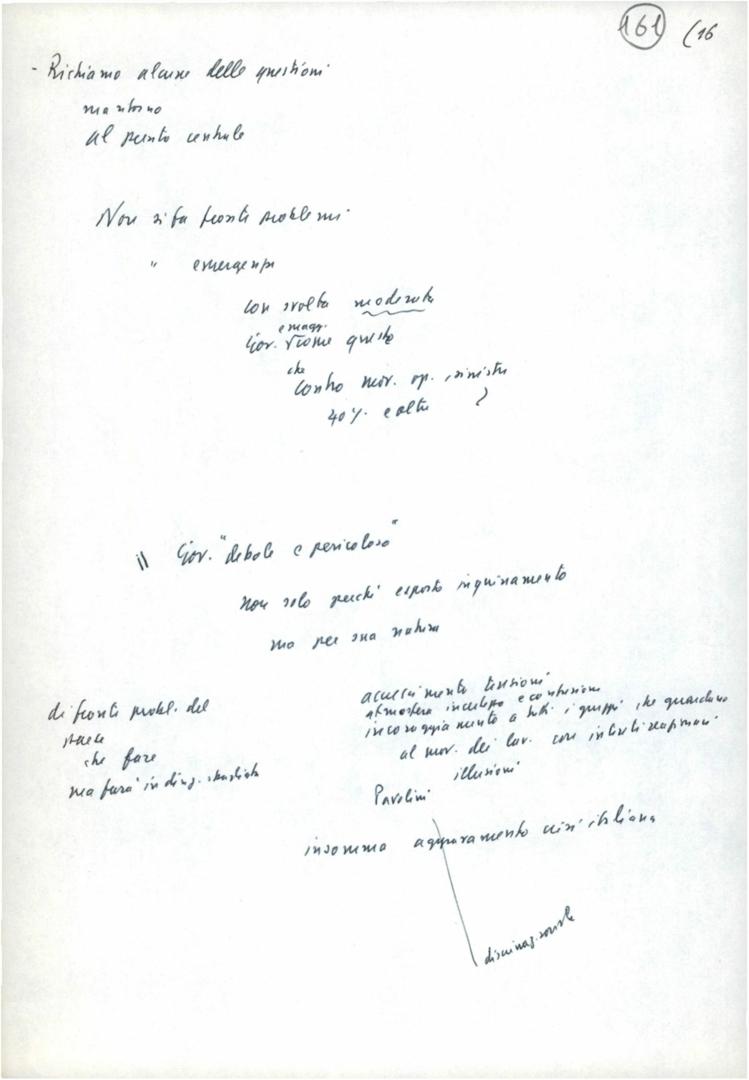 161 (16
- Richiamo alcune delle questioni
ma ritorno
al punto centrale
Non si fa fronte problemi
" emergenza
con svolta moderata
e magg.
Gov. come questo
che
contro mov. op. sinistra
40% e altri
il Gov. "debole e pericoloso"
non solo perché esposto inquinamento
ma per sua natura
di fronte probl. del
che fare
ma farà in direz. sbagliata
acutizzamento tensioni
atmosfera incertezza e confusione
incoraggiamento a tutti i gruppi che guardano
al mov. dei lav. con intenti
illusioni
Pavolini
insomma aggravamento crisi italiana